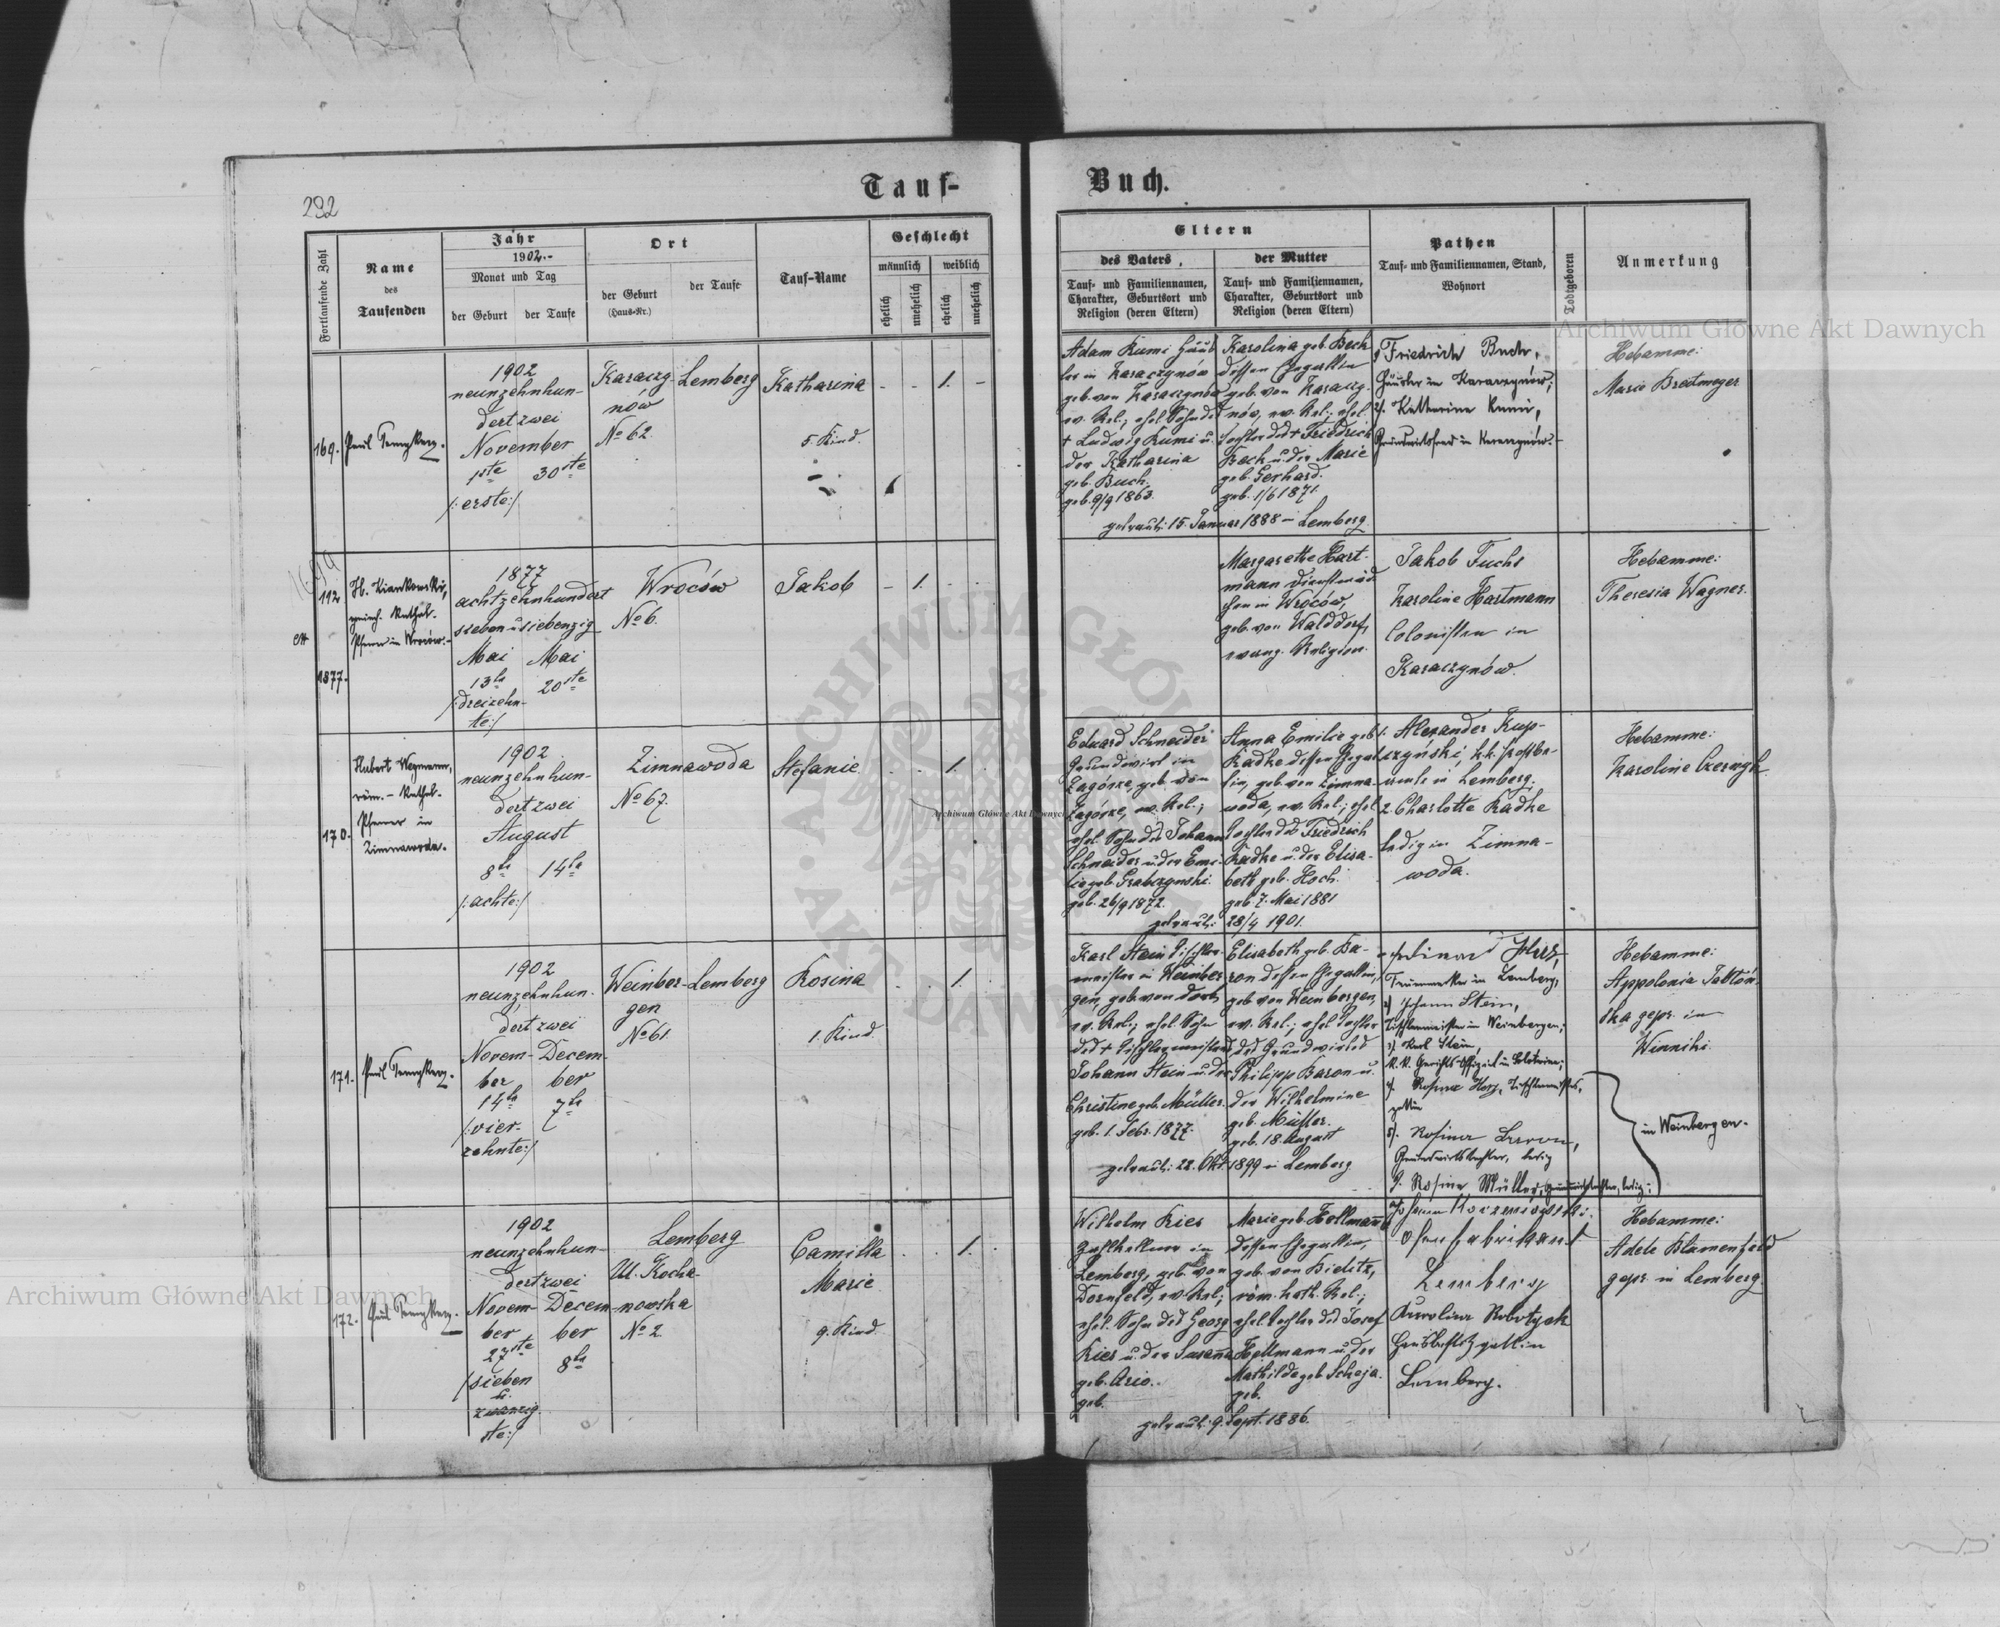 292
Tauf-
Buch.
Fortlaufende Zahl
Name
des
Taufenden
Jahr
1902.-
Monat und Tag
der Geburt
der Taufe
Ort
der Geburt
(Haus-Nr.)
der Taufe
Tauf-Name
Geschlecht
männlich
weiblich
ehelich
unehelich
ehelich
unehelich
Eltern
des Vaters,
Tauf- und Familiennamen,
Charakter, Geburtsort und
Religion (deren Eltern)
der Mutter
Tauf- und Familiennamen,
Charakter, Geburtsort und
Religion (deren Eltern)
Pathen
Tauf- und Familiennamen, Stand,
Wohnort
Todtgeboren
Anmerkung
169.
1902
neunzehnhun-
dert zwei
November
1ste 30ste
/:erste:/
Karaczy-
nów
No 62.
Lemberg
Katharina
5. Kind.
1.
Adam Kumi Häus
ler in Karaczynow
geb. von Karaczynów
ev. Rel.; ehel. Sohn des
+ Ludwig Kumi u.
der Katharina
geb. Buch.
geb. 9/9 1863.
Karolina geb. Bech
dessen Ehegattin
geb. von Karaczy-
nów, ev. Rel.; ehel.
Tochter des + Friedrich
Bech u. der Marie
geb. Gerhard.
geb. 1/6 1871.
getraut: 15. Januar 1888 in Lemberg
Friedrich
Häusler in Karaczynów;
2. Katharina Kumi,
in Karaczynów.
Hebamme:
Marie Breitmeyer
112
1877.
Pfarrer in Wroców.
1877
achtzehnhundert
sieben u siebenzig
Mai Mai
13te 20ste
/:dreizehn-
te:/
Wroców
No 6.
Jakob
1.
Margarethe Hart-
mann Dienstmäd-
chen in Wroców,
geb. von Walddorf,
evang. Religion.
Jakob Fuchs
Karoline Hartmann
Colonisten in
Karaczynów.
Hebamme:
Theresia Wagner.
170.
Hubert Wegmann,
röm.-Kathol.
Pfarrer in
Zimnawoda.
1902
neunzehnhun-
dert zwei
August
8te 14te
/:achte:/
Zimnawoda
No 67.
Stefanie
1.
Eduard Schneider
Grundwirt in
Zagórze, geb. von
Zagórze, ev. Rel.;
ehel. Sohn des Johann
Schneider u. der Emi-
lie geb. Grabczynski.
geb. 26/9 1872.
Anna Emilie geb.
Radke dessen Ehegat
tin, geb. von Zimna-
woda, ev. Rel.; ehel.
Tochter des Friedrich
Radke u. der Elisa-
beth geb. Hoch.
geb. 7. Mai 1881
getraut: 28/4 1901.
1. Alexander Kup-
czyński, k.k.
in Lemberg,
2 Charlotte Radke
ledig in Zimna-
woda.
Hebamme:
Karoline Czernyk
171.
1902
neunzehnhun-
dert zwei
Novem- Decem-
ber ber
14te 7te
/:vier-
zehnte:/
Weinber-
gen
No 61.
Lemberg
Rosina
1. Kind
1.
Karl Stein Tischler-
meister in Weinber
gen, geb. von dort,
ev. Rel.; ehel. Sohn
des + Tischlermeisters
Johann Stein u. der
Christine geb. Müller.
geb. 1. Febr. 1877.
Elisabeth geb. Ba-
ron dessen Ehegattin,
geb. von Weinbergen,
ev. Rel.; ehel. Tochter
des Grundwirtes
Philipp Baron u.
der Wilhelmine
geb. Müller.
geb. 18. August
getraut: 22. Okt. 1899 in Lemberg
in Lemberg,
2) Johann Stein,
Tischlermeister in Weinbergen;
3) Karl Stein,
k.k. Gerichts-Offizial in
4. Rosina Tischlermeisters-
gattin
5). Rosina Baron,
Grundwirtstochter, ledig
Rosina Müller, ledig;
in Weinbergen.
Hebamme:
Appolonia Jabłoń-
ska gepr. in
Winniki
172.
1902
neunzehnhun-
dert zwei
Novem- Decem-
ber ber
27ste 8te
/:sieben
u.
zwanzig
ste:/
Lemberg
Ul. Kocha-
nowska
No 2.
Camilla
Marie
9. Kind.
1.
Wilhelm Kies
in
Lemberg, geb. von
Dornfeld, ev. Rel.;
ehel. Sohn des Georg
Kies u. der Susanna
geb.
geb.
Marie geb. Hollmann
dessen Ehegattin,
geb. von Bielitz,
röm. kath. Rel.;
ehel. Tochter des Josef
Hollmann u. der
Mathilde geb. Scheja.
geb.
getraut: 9. Sept. 1886.
Johann
Ofenfabrikant
Lemberg
Karolina
Lemberg.
Hebamme:
Adele Blumenfeld
gepr. in Lemberg
Archiwum Główne Akt Dawnych
Archiwum Główne Akt Dawnych
Archiwum Główne Akt Dawnych
ARCHIWUM GŁÓWNE AKT DAWNYCH